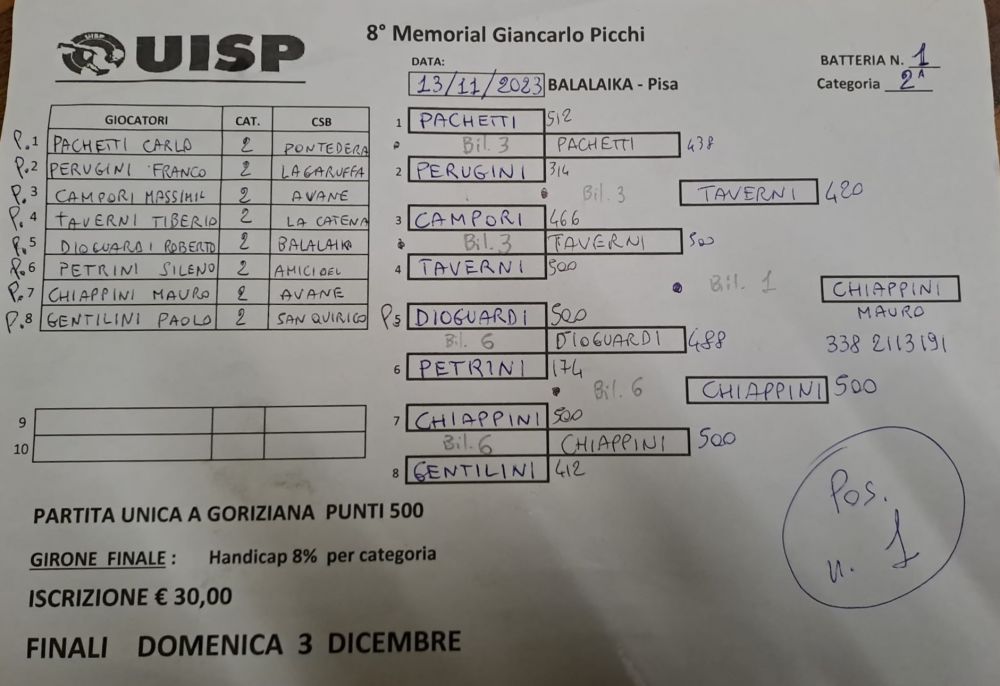 UISP
8° Memorial Giancarlo Picchi
DATA:
13/11/2023 BALALAIKA - Pisa
BATTERIA N. 1
Categoria 2ᴬ
GIOCATORI CAT. CSB
P.1 PACHETTI CARLO 2 PONTEDERA
P.2 PERUGINI FRANCO 2 LAGARUFFA
P.3 CAMPORI MASSIMIL 2 AVANE
P.4 TAVERNI TIBERIO 2 LA CATENA
P.5 DIOGUARDI ROBERTO 2 BALALAIKA
P.6 PETRINI SILENO 2 AMICI DEL
P.7 CHIAPPINI MAURO 2 AVANE
P.8 GENTILINI PAOLO 2 SAN QUIRICO
9
10
1 PACHETTI 512
Bil. 3 PACHETTI 438
2 PERUGINI 314
Bil. 3 TAVERNI 420
3 CAMPORI 466
Bil. 3 TAVERNI 500
4 TAVERNI 500
Bil. 1 CHIAPPINI
MAURO
338 2113191
P.5 DIOGUARDI 500
Bil. 6 DIOGUARDI 488
6 PETRINI 174
Bil. 6 CHIAPPINI 500
7 CHIAPPINI 500
Bil. 6 CHIAPPINI 500
8 GENTILINI 412
Pos.
n. 1
PARTITA UNICA A GORIZIANA PUNTI 500
GIRONE FINALE : Handicap 8% per categoria
ISCRIZIONE € 30,00
FINALI DOMENICA 3 DICEMBRE